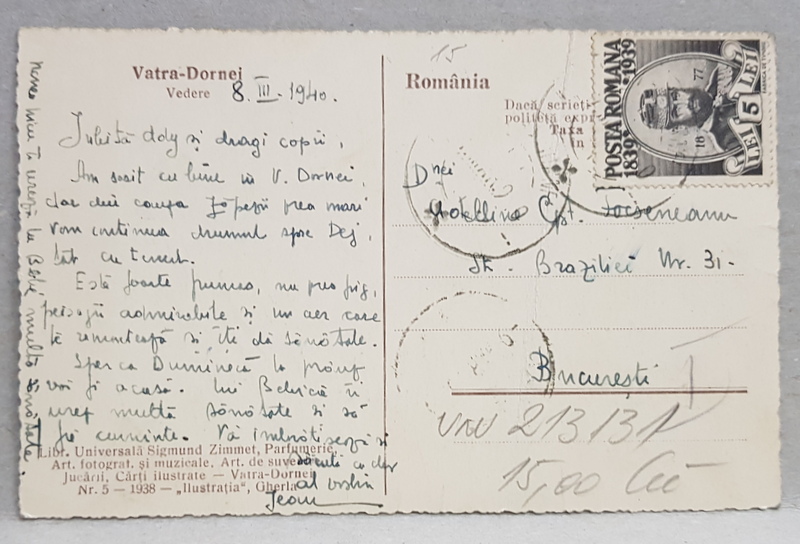 Vatra-Dornei
Vedere 8.III.1940.
Iubită doly și dragi copii,
Am sosit cu bine în V. Dornei,
dar din cauza zăpezii prea mari
vom continua drumul spre Dej,
tot cu trenul.
Este foarte frumos, nu prea frig,
peisagii admirabile și un aer care
te remontează și îți dă sănătate.
Sper ca Duminecă la prânz
voi fi acasă. Lui Bebică îi
urez multă sănătate și să
fie cuminte. Vă îmbrățișează și
sărută cu dor
al vostru
Jean
multă sănătate.
Libr. Universală Sigmund Zimmet, Parfumerie,
Art. fotograt. și muzicale. Art. de suve
Jucării, Cărți ilustrate — Vatra-Dornei
Nr. 5 — 1938 — „Ilustrația", Gherla
15
România
Dacă scrieți
politeță expr
Taxa
în
POSTA ROMANA
1839 1939
LEI 5 LEI
18 77
Dnei
Cpt.
Str. Braziliei Nr. 31.
București
VNV 213131
15,00 Lei